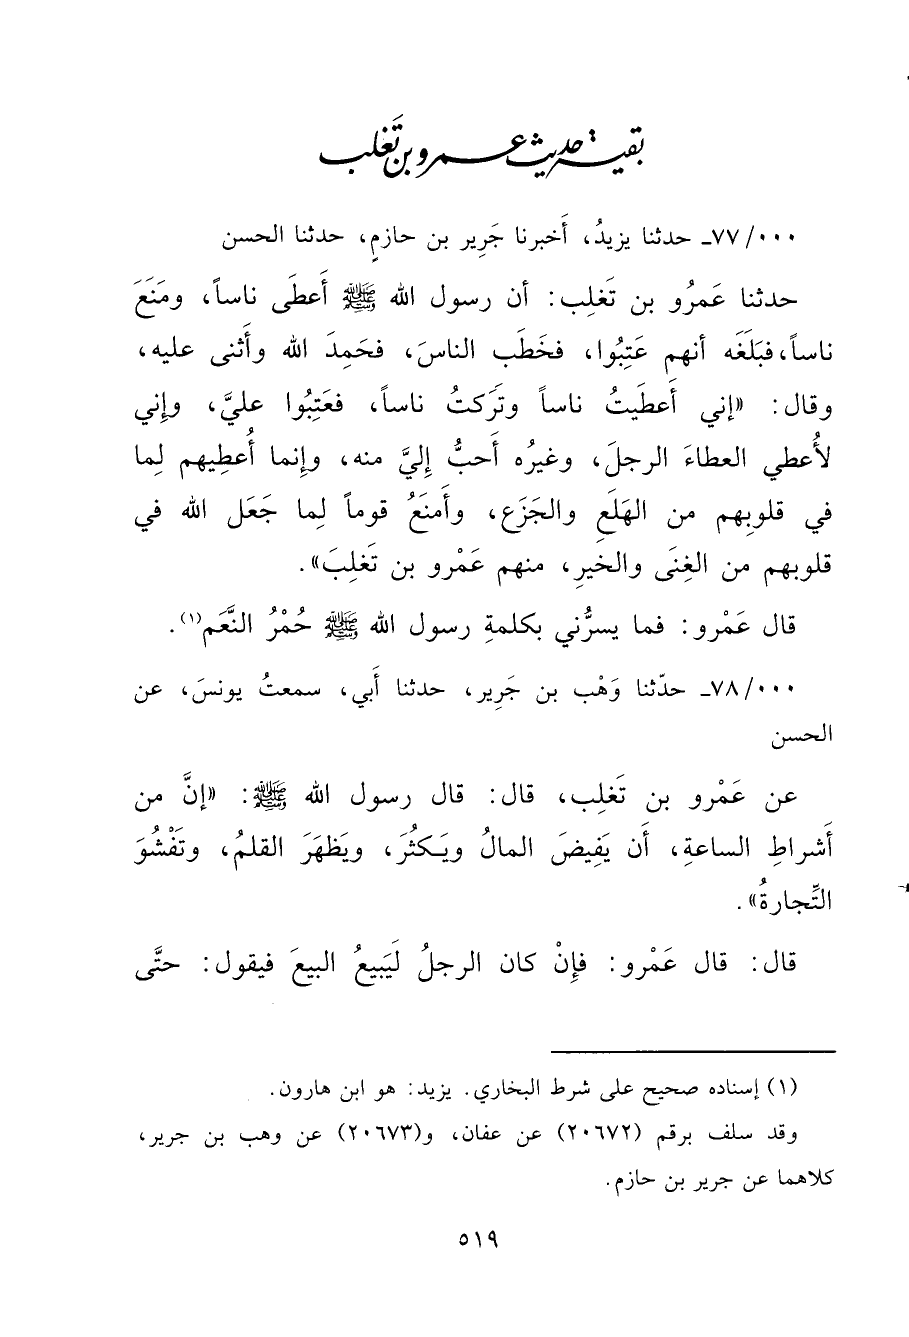 بقية حديث عمرو بن تَغلب
٧٧/٠٠٠ـ حدثنا يزيدُ، أَخبرنا جَرِير بن حازمٍ، حدثنا الحسن
حدثنا عَمرُو بن تَغلِب: أن رسول الله ﷺ أَعطَى ناساً، ومَنَعَ
ناساً، فبَلَغَه أنهم عَتِبُوا، فخَطَب الناسَ، فحَمِدَ الله وأَثنى عليه،
وقال: «إني أَعطَيتُ ناساً وتَركتُ ناساً، فعَتِبُوا عليَّ، وإِني
لأُعطي العطاءَ الرجلَ، وغيرُه أَحبُّ إِليَّ منه، وإِنما أُعطِيهم لِما
في قلوبِهم من الهَلَعِ والجَزَعِ، وأَمنَعُ قوماً لِما جَعَل الله في
قلوبهم من الغِنَى والخيرِ، منهم عَمْرو بن تَغلِبَ».
قال عَمْرو: فما يسرُّني بكلمةِ رسول الله ﷺ حُمْرُ النَّعَم(١).
٧٨/٠٠٠ـ حدّثنا وَهْب بن جَرِير، حدثنا أَبي، سمعتُ يونسَ، عن
الحسن
عن عَمْرو بن تَغلِب، قال: قال رسول الله ﷺ: «إنَّ من
أَشراطِ الساعةِ، أَن يَفِيضَ المالُ ويَكثُرَ، ويَظهَرَ القلمُ، وتَفْشُوَ
التِّجارةُ».
قال: قال عَمْرو: فإِنْ كان الرجلُ لَيَبيعُ البيعَ فيقول: حتَّى
(١) إسناده صحيح على شرط البخاري. يزيد: هو ابن هارون.
وقد سلف برقم (٢٠٦٧٢) عن عفان، و(٢٠٦٧٣) عن وهب بن جرير،
كلاهما عن جرير بن حازم.
٥١٩